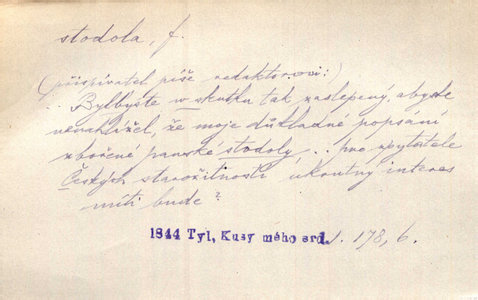 stodola, f.
(přispívatel píše redaktorovi:)
.. Bylbyste w skutku tak zaslepený, abyste
nenahlížel, že moje důkladné popsání
zbořené panské stodoly ... pro zpytatele
Českých starožitností ukrutný interes
míti bude?
1844 Tyl, Kusy mého srd. 1. 178, 6.